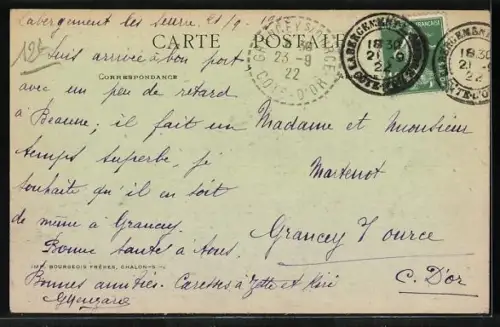 Labergement les Seurre, 21/9
CARTE POSTALE
GRANCEY-S-OURCE
23 -9
22
COTE-D'OR
LABERGEMENT
18 30
21 -9
22
LABERGEMENT
18 30
21
22
CORRESPONDANCE
Suis arrivée à bon port
avec un peu de retard
à Beaune; il fait un
temps superbe, je
souhaite qu'il en soit
de même à Grancey.
Bonne santé à tous.
Bonnes amitiés. Caresses à Zette et Kiri
Madame et Monsieur
Martenot
Grancey s/ Ource
C. D'or
IMP. BOURGEOIS FRÈRES, CHALON-S-